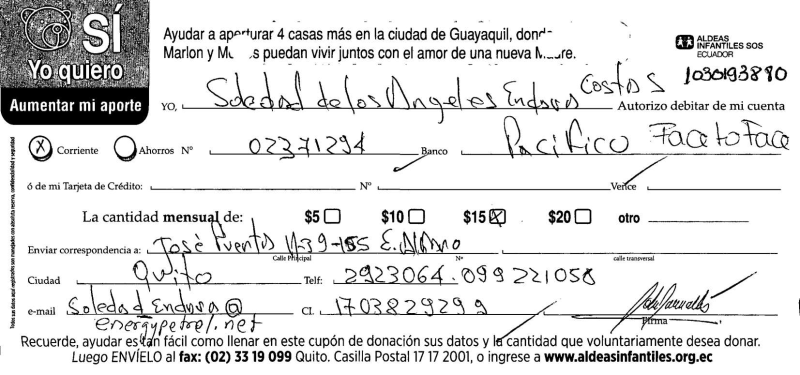 SÍ
Yo quiero
Aumentar mi aporte
Ayudar a aperturar 4 casas más en la ciudad de Guayaquil, dond
Marlon y M s puedan vivir juntos con el amor de una nueva M dre.
ALDEAS
INFANTILES SOS
ECUADOR
1030193880
YO, Soledad de los Angeles Endara Costas Autorizo debitar de mi cuenta
X Corriente Ahorros N° 02371294 Banco Pacifico Face to Face
ó de mi Tarjeta de Crédito: N° Vence
La cantidad mensual de: $5 $10 $15 X $20 otro
Enviar correspondencia a: José Puertas N39-155 E.
Calle Principal N° calle transversal
Ciudad Quito Telf: 2923064 - 099221058
e-mail Soledad Endara@ CI. 1703829299
energypetrol.net Firma
Recuerde, ayudar es tan fácil como llenar en este cupón de donación sus datos y la cantidad que voluntariamente desea donar.
Luego ENVÍELO al fax: (02) 33 19 099 Quito. Casilla Postal 17 17 2001, o ingrese a www.aldeasinfantiles.org.ec